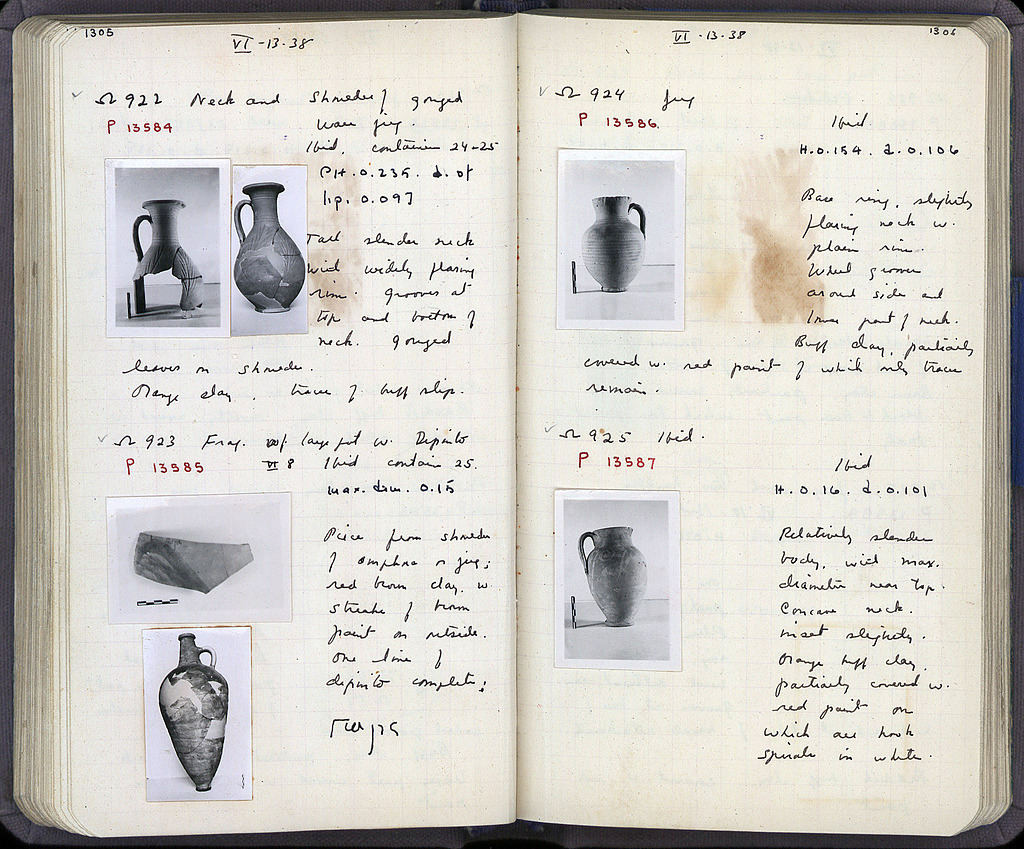 1305
VI - 13 · 38
Ω 922 Neck and Shoulder of gouged
P 13584 ware jug.
Ibid, container 24-25
PH. 0.235. d. of
lip. 0.097
Tall slender neck
with widely flaring
rim. Grooves at
top and bottom of
neck. Gouged
leaves on shoulder.
Orange clay, traces of buff slip.
Ω 923 Frag. of large pot w. Dipinto
P 13585 VI 8 Ibid container 25.
max. dim. 0.15
Piece from shoulder
of amphora or jug;
red brown clay w.
streaks of brown
paint on outside.
One line of
dipinto complete;
1306
VI · 13 · 38
Ω 924 Jug
P 13586 Ibid
H. 0.154. d. 0.106
Base ring, slightly
flaring neck w.
plain rim.
Wheel grooves
around side and
lower part of neck.
Buff clay, partially
covered w. red paint of which only traces
remain.
Ω 925 Ibid.
P 13587 Ibid
H. 0.16. d. 0.101
Relatively slender
body, with max.
diameter near top.
Concave neck.
inset slightly.
Orange buff clay,
partially covered w.
red paint on
which are hook
spirals in white.